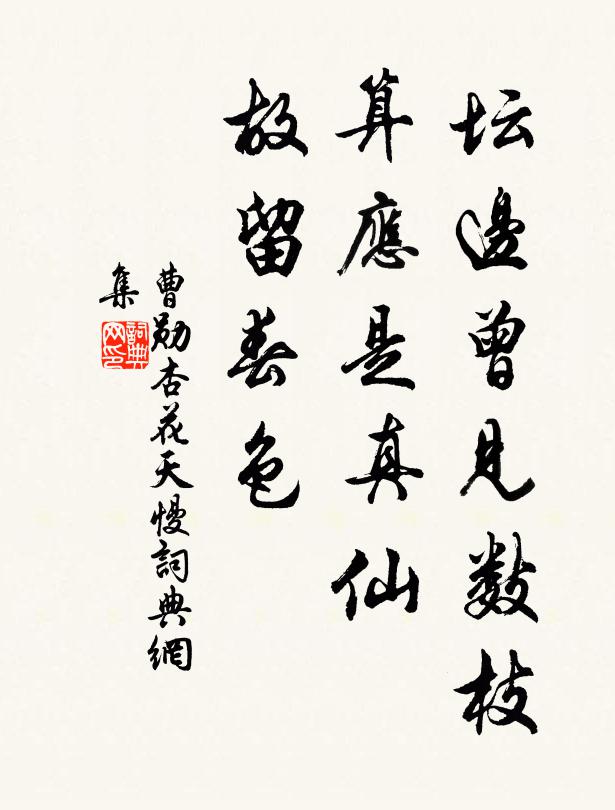 坛邊曾見数枝
算應是真仙
故留春色
曹勛杏花天慢詞典網
集
詞典網印